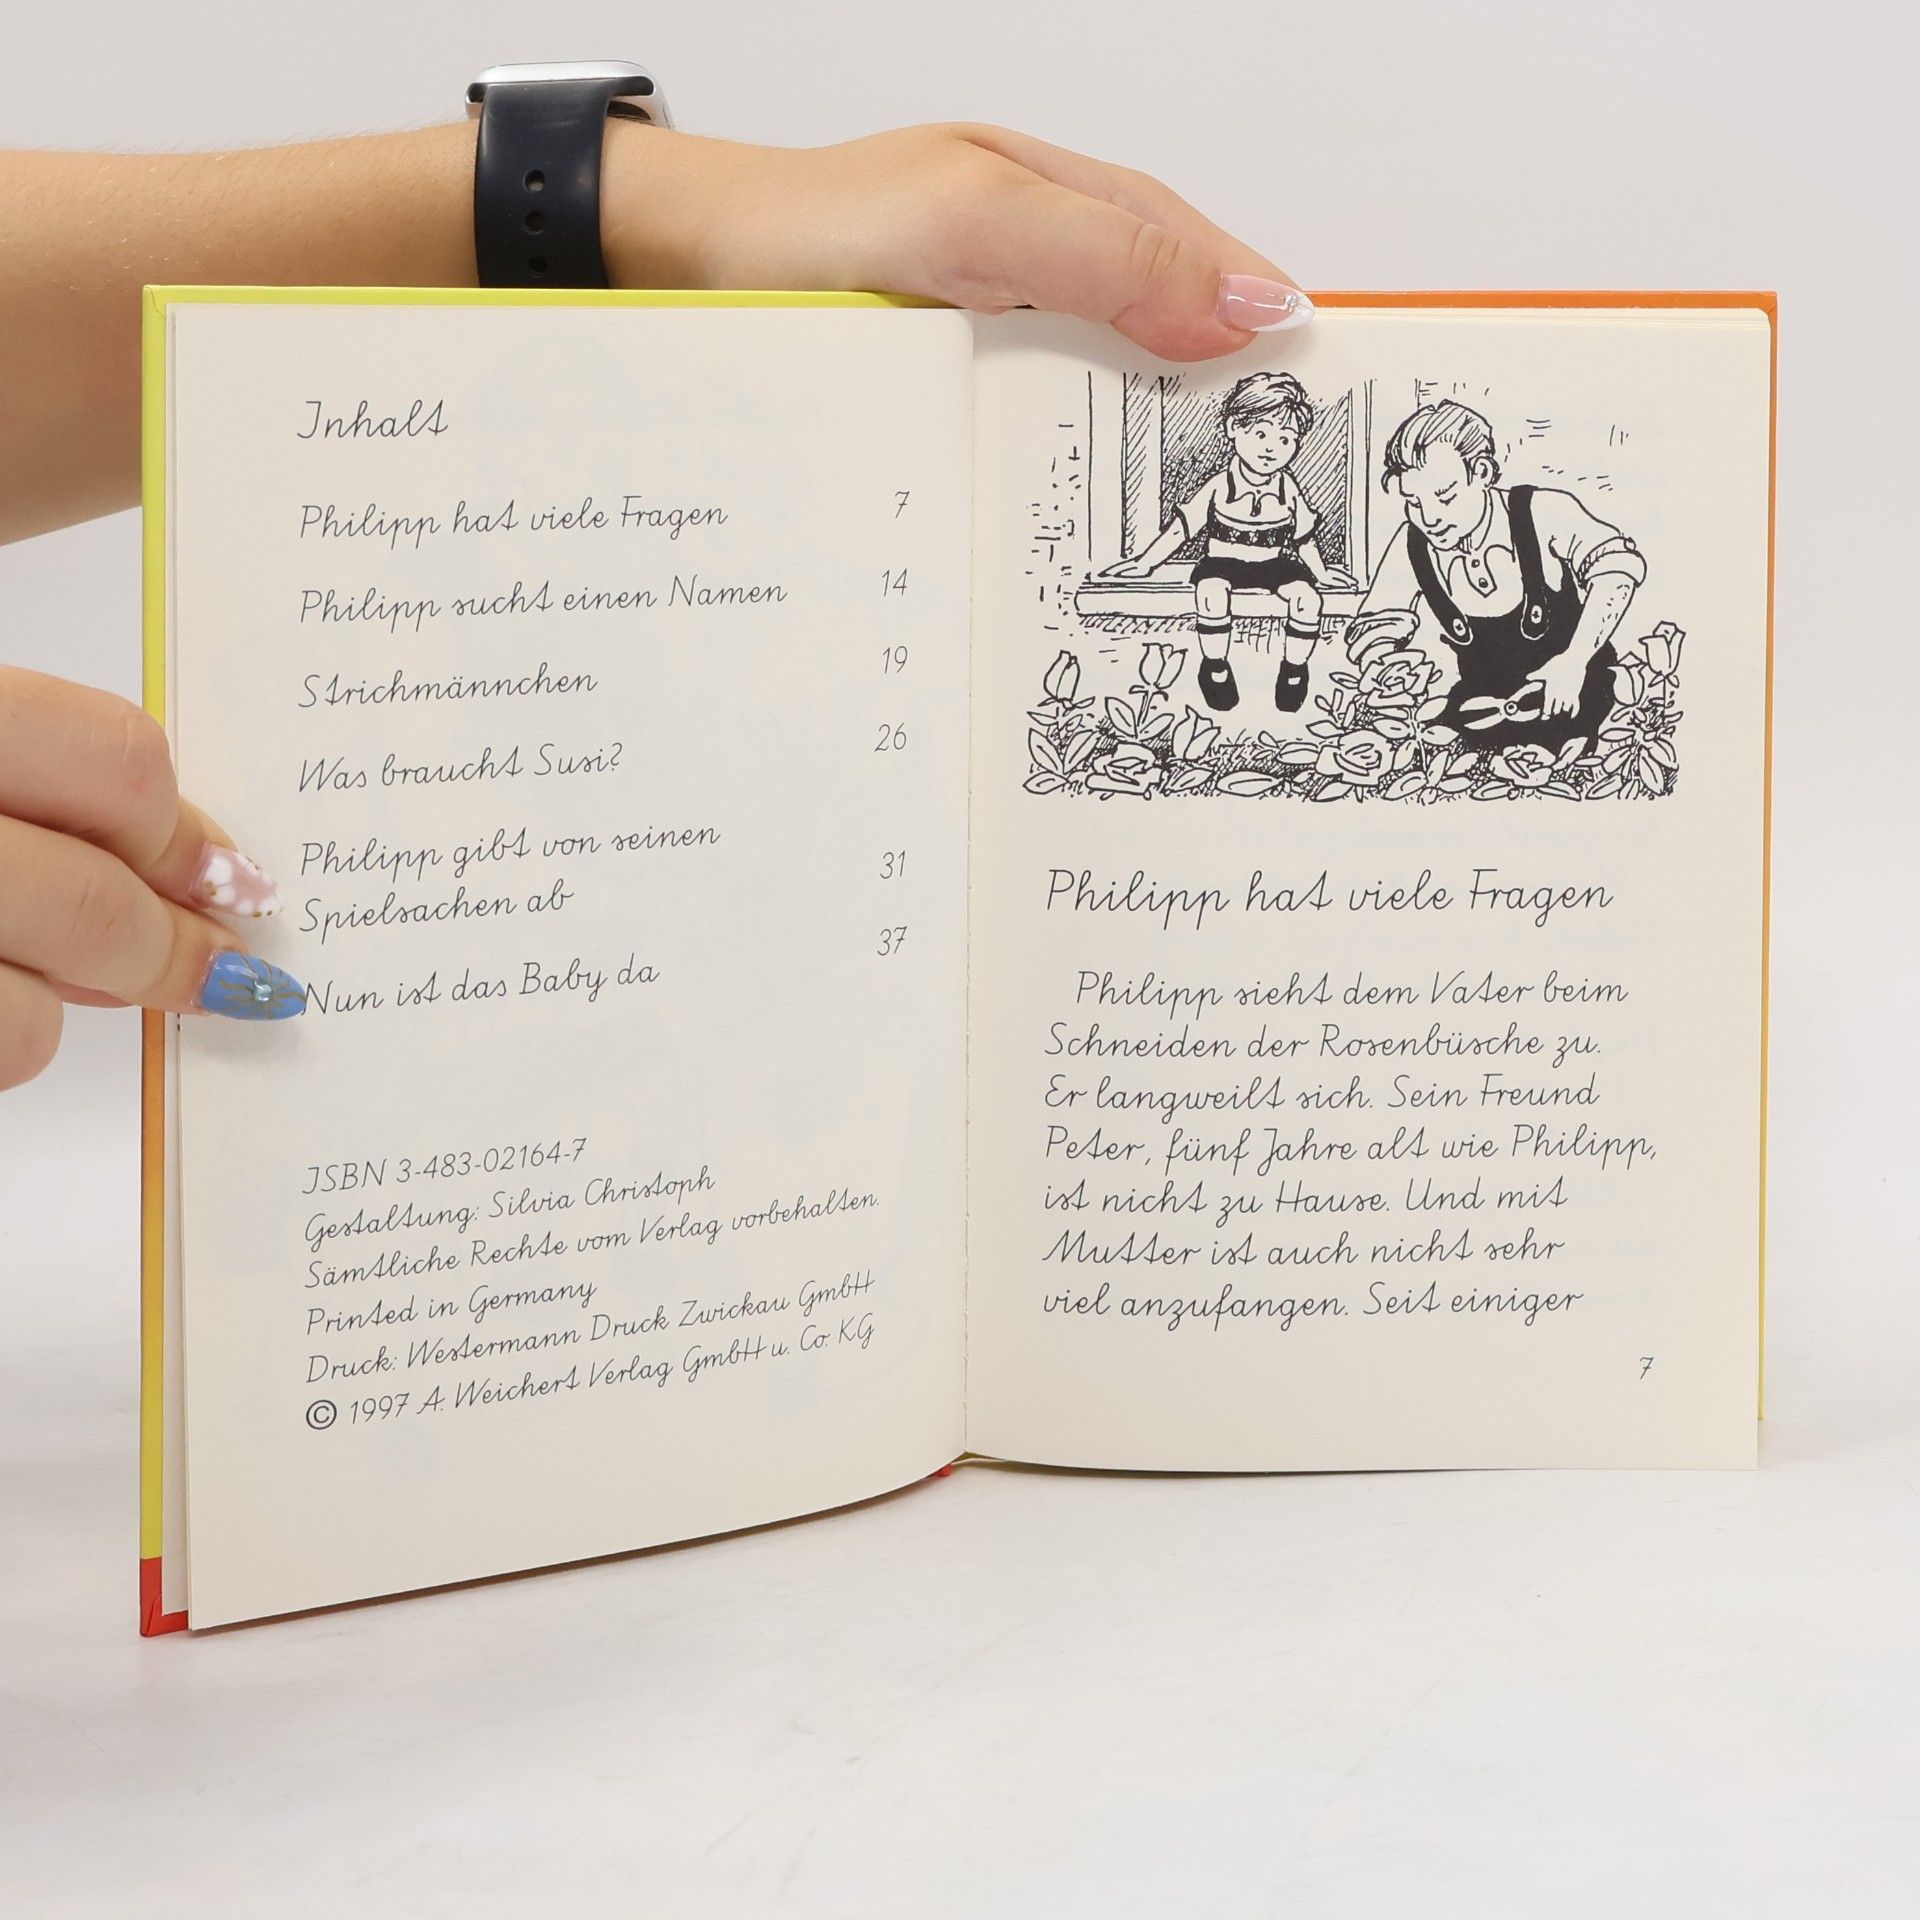 Inhalt
Philipp hat viele Fragen 7
Philipp sucht einen Namen 14
Strichmännchen 19
Was braucht Susi? 26
Philipp gibt von seinen
Spielsachen ab 31
Nun ist das Baby da 37
ISBN 3-483-02164-7
Gestaltung: Silvia Christoph
Sämtliche Rechte vom Verlag vorbehalten.
Printed in Germany
Druck: Westermann Druck Zwickau GmbH
© 1997 A. Weichert Verlag GmbH u. Co. KG
Philipp hat viele Fragen
Philipp sieht dem Vater beim
Schneiden der Rosenbüsche zu.
Er langweilt sich. Sein Freund
Peter, fünf Jahre alt wie Philipp,
ist nicht zu Hause. Und mit
Mutter ist auch nicht sehr
viel anzufangen. Seit einiger
7